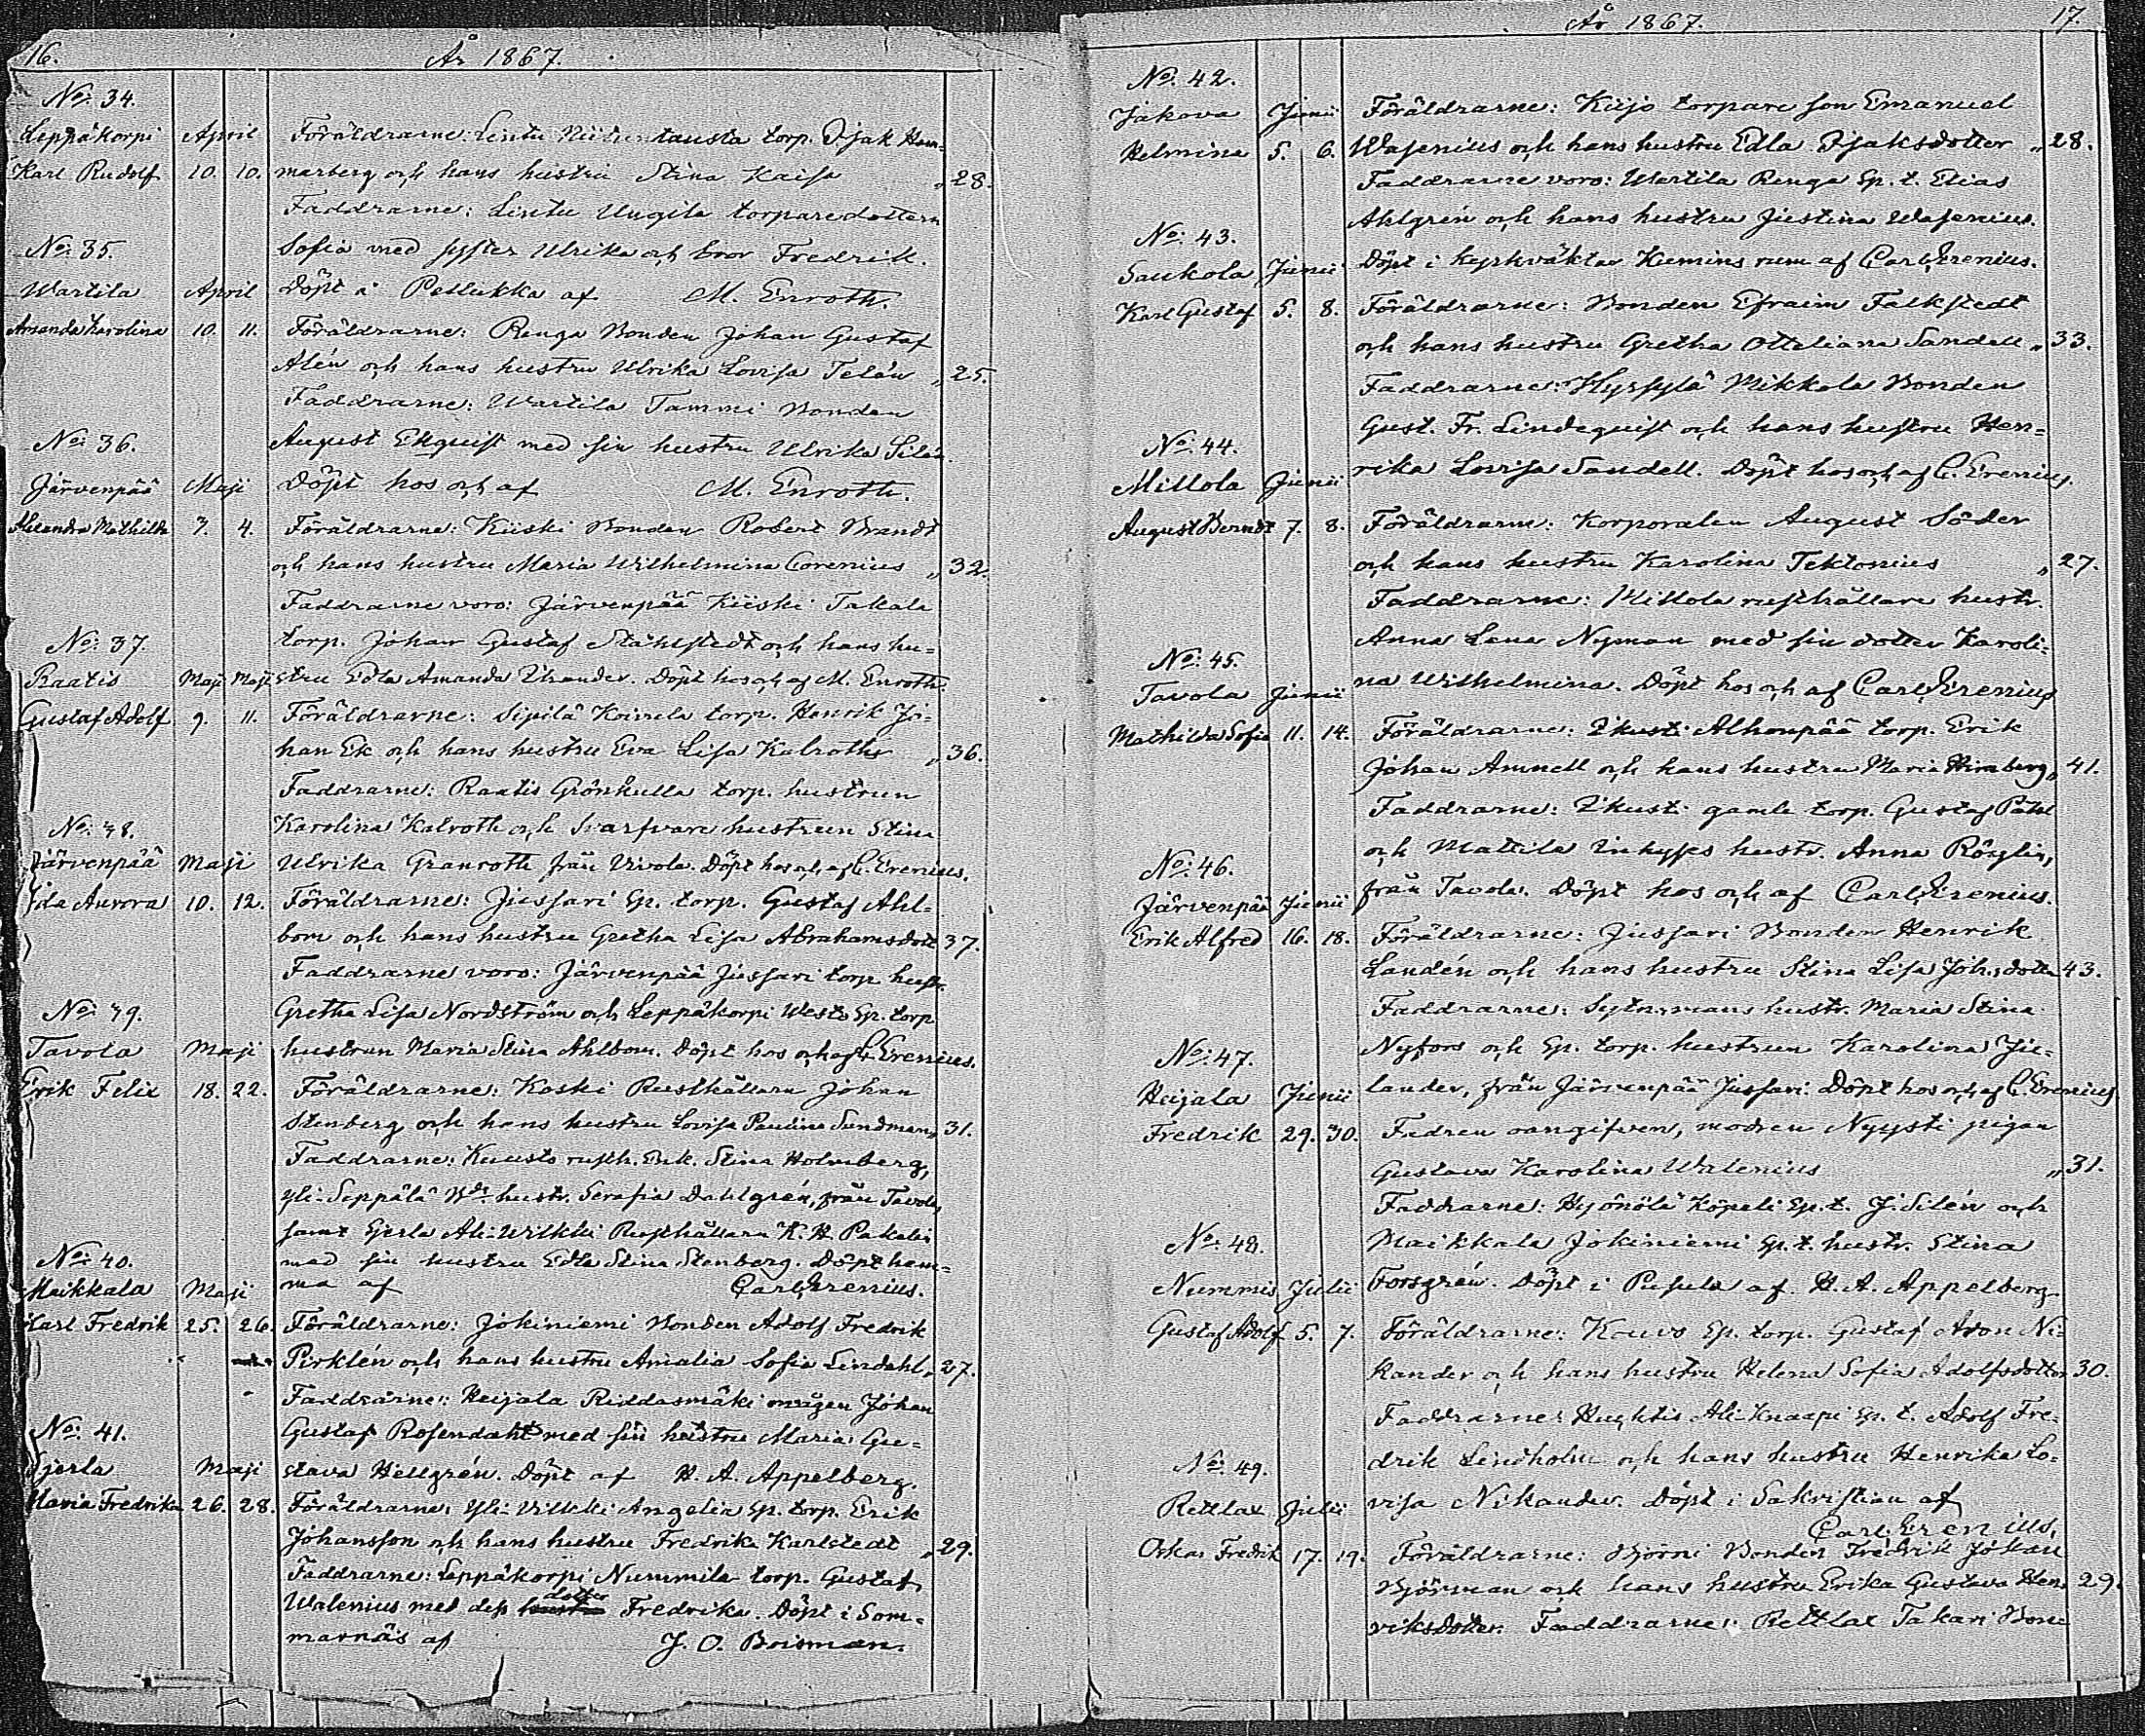 16.
År 1867.
No: 34.
Leppäkorpi April Föräldrarne: Lintu torp. Isak Ham=
Karl Rudolf 10. 10. marberg och hans hustru Stina Kaisa „ 28.
Faddrarne: Lintu Ungila torparedottern
No: 35. Sofia med syster Ulrika och bror Fredrik.
Wartila April Döpt i af M. Enroth.
Amanda Karolina 10. 11. Föräldrarne: Renga Bonden Johan Gustaf
Alén och hans hustru Ulrika Lovisa Telén „ 25.
Faddrarne: Wartila Tammi Bonden
No: 36. August Ekquist med sin hustru Ulrika Silén.
Järvenpää Maji Döpt hos och af M. Enroth.
Alexandra Mathilda 3. 4. Föräldrarne: Kiiski Bonden Robert Brandt
och hans hustru Maria Wilhelmina Corenius „ 32.
Faddrarne voro: Järvenpää Kiiski Takala
No: 37. torp. Johan Gustaf Ståhlstedt och hans hu=
Raatis Maji Maji stru Edla Amanda Thander. Döpt hos och af M. Enroth.
Gustaf Adolf 9. 11. Föräldrarne: Sipilä Koivula torp. Henrik Jo=
han Ek och hans hustru Eva Lisa Kalroth „ 36.
Faddrarne: Raatis Grönkulla torp. hustrun
No: 38. Karolina Kalroth och Svarfvare hustrun Stina
Järvenpää Maji Ulrika Granroth från Vivola. Döpt hos och af C. Erenius.
Ida Aurora 10. 12. Föräldrarne: Jussari Sp. torp. Gustaf Ahl=
bom och hans hustru Gretha Lisa Abrahamsdott 37.
Faddrarne voro: Järvenpää Jussari torp. hustr.
No: 39. Gretha Lisa Nordström och Leppäkorpi Westo Sp. torp
Tavola Maji hustrun Maria Stina Ahlbom. Döpt hos och af C. Erenius.
Erik Felix 18. 22. Föräldrarne: Koski Rusthållare Johan
Stenberg och hans hustru Lovisa Paulina Sundman „ 31.
Faddrarne: Kuusto rusth. Enk. Stina Holmberg,
Yli-Seppälä Bde hustr. Serafia Dahlgrén, från Tavola,
samt Gerla Ali-Wilkki Rusthållare K. H. Pakalén
No: 40. med sin hustru Edla Stina Stenberg. Döpt hem=
Maikkala Maji ma af Carl Erenius.
Karl Fredrik 25. 26. Föräldrarne: Jokiniemi Bonden Adolf Fredrik
Pirklén och hans hustru Amalia Sofia Lindahl „ 27.
Faddrarne: Heijala Riddasmäki mågen Johan
No: 41. Gustaf Rosendahl med sin hustru Maria Gu=
Gjerla Maji stava Hellgrén. Döpt af H. A. Appelberg.
Maria Fredrika 26. 28. Föräldrarne: Yli-Vilkki Angelia Sp. torp. Erik
Johansson och hans hustru Fredrika Karlstedt „ 29.
Faddrarne: Leppäkorpi Nummila torp. Gustaf
dotter
Walenius med dess hustru Fredrika. Döpt i Som=
marnäs af J. O. Boisman.
År 1867.
17.
No: 42.
Jakova Junii Föräldrarne: Kiijo torpare son Emanuel
Helmina 5. 6. Wasenius och hans hustru Edla Isaksdotter „ 28.
Faddrarne voro: Wartila Renga Sp. t. Elias
Ahlgrén och hans hustru Justina Wasenius.
No: 43.
Saukola Junii Döpt i kyrkväktar Kumins rum af Carl Erenius.
Karl Gustaf 5. 8. Föräldrarne: Bonden Efraim Falkstedt
och hans hustru Gretha Otteliana Sandell „ 33.
Faddrarne: Hyrsylä Mikkola Bonden
Gust. Fr. Lindequist och hans hustru Hen=
No: 44.
rika Lovisa Sandell. Döpt hos och af C. Erenius.
Millola Junii
August Berndt 7. 8. Föräldrarne: Korporalen August Söder
och hans hustru Karolina Tektonius „ 27.
Faddrarne: Millola rusthållare hustr.
Anna Lena Nyman med sin dotter Karoli=
No: 45.
Tavola Junii na Wilhelmina. Döpt hos och af Carl Erenius
Mathilda Sofia 11. 14. Föräldrarne: Alhonpää torp. Erik
Johan Amnell och hans hustru Maria Hirnberg „ 41.
Faddrarne: gamle torp. Gustaf Påhl
No: 46. och Mattila hustr. Anna Röglin,
Järvenpää Junii från Tavola. Döpt hos och af Carl Erenius.
Erik Alfred 16. 18. Föräldrarne: Jussari Bonden Henrik
Landén och hans hustru Stina Lisa Joh.dotter 43.
Faddrarne: Sytn.mans hustr. Maria Stina
No: 47. Nyfors och Sp. torp. hustrun Karolina Ju=
Heijala Junii lander, från Järvenpää Jussari. Döpt hos och af C. Erenius
Fredrik 29. 30. Fadren oangifven, modren Nyysti pigan
Gustava Karolina Walenius „ 31.
Faddrarne: Hyönölä Köpeli Sp. t. J. Silén och
No: 48. Maikkala Jokiniemi Sp. t. hustr. Stina
Nummis Julii Forsgrén. Döpt i Pusula af H. A. Appelberg.
Gustaf Adolf 5. 7. Föräldrarne: Kouvo Sp. torp. Gustaf Aron Ni=
kander och hans hustru Helena Sofia Adolfsdotter 30.
Faddrarne: Huhtis Ali-Knaapi Sp. t. Adolf Fre=
No: 49. drik Lindholm och hans hustru Henrika Lo=
Rettlax Julii visa Nikander. Döpt i Sakristian af
Carl Erenius.
Oskar Fredrik 17. 19. Föräldrarne: Björni Bonden Fredrik Johan
Björman och hans hustru Erika Gustava Hen= 29.
riksdotter. Faddrarne: Rettlax Takari Bon=